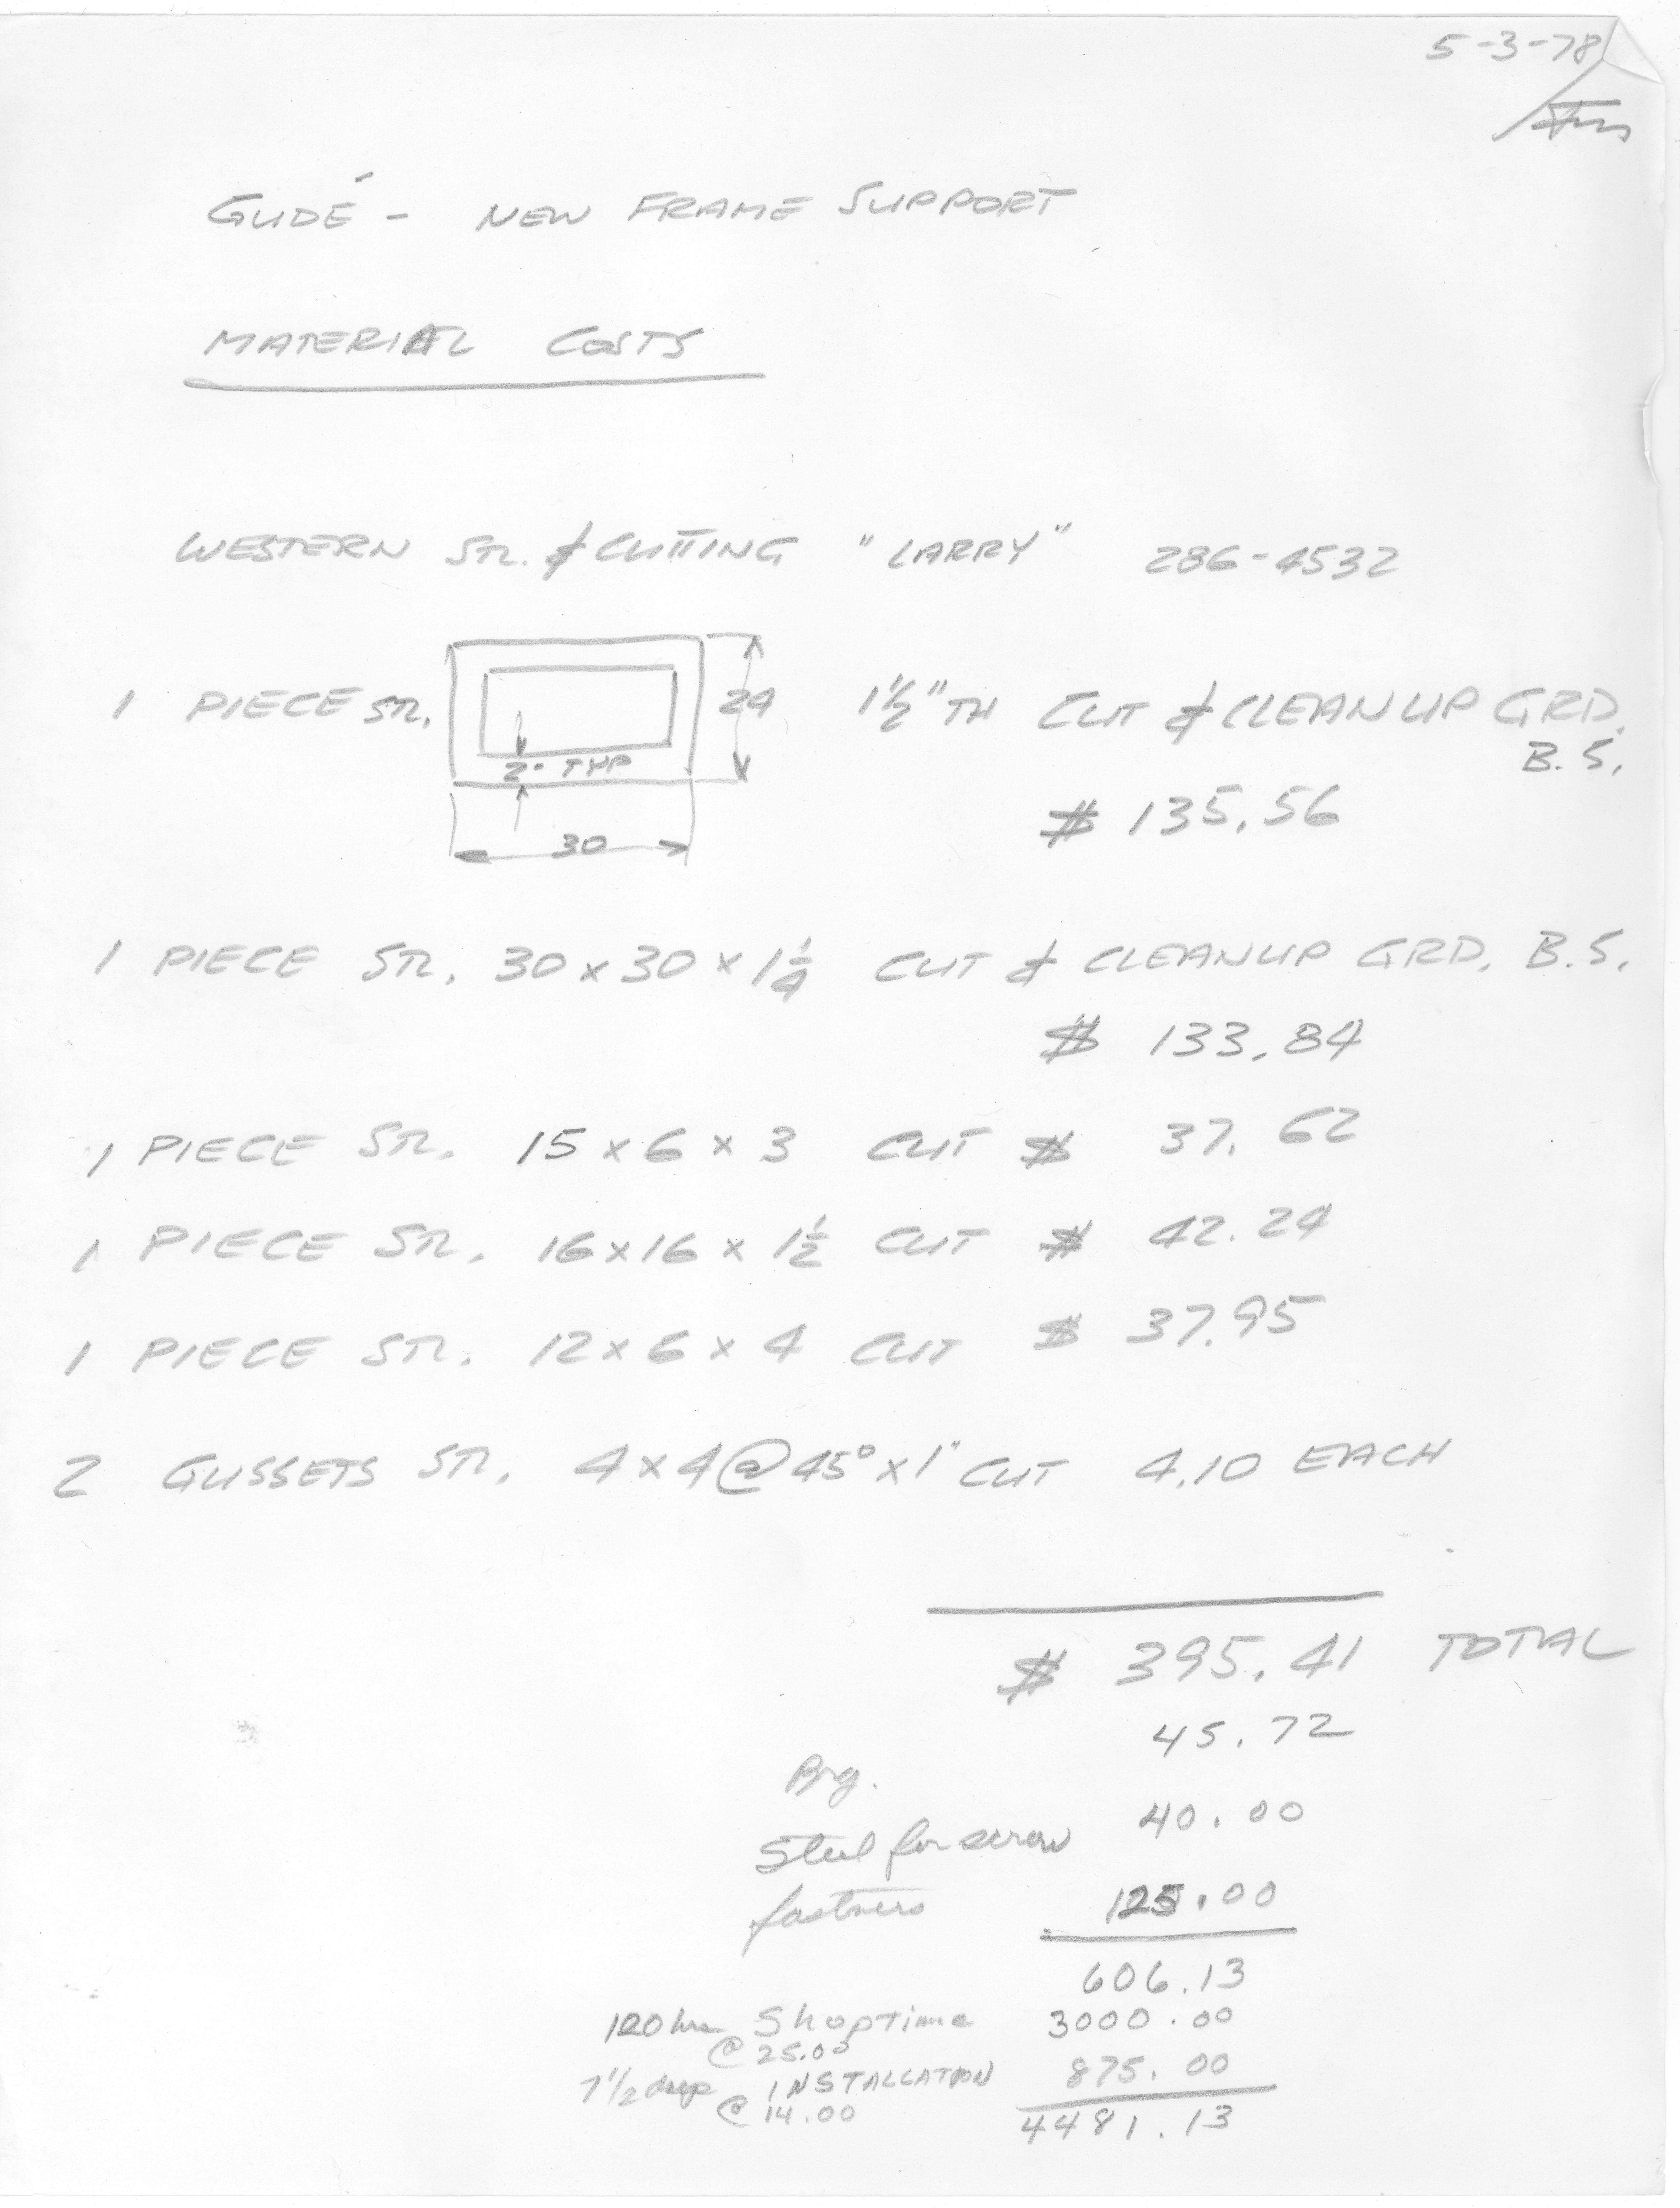 5-3-78
GUDÉ - NEW FRAME SUPPORT
MATERIAL COSTS
WESTERN STL. & CUTTING "LARRY" 286-4532
1 PIECE STL. 24 1½" TH CUT & CLEANUP GRD.
B.S.
2" TYP
30
$ 135.56
1 PIECE STL. 30 x 30 x 1¼ CUT & CLEANUP GRD. B.S.
$ 133.84
1 PIECE STL. 15 x 6 x 3 CUT $ 37.62
1 PIECE STL. 16 x 16 x 1½ CUT $ 42.24
1 PIECE STL. 12 x 6 x 4 CUT $ 37.95
2 GUSSETS STL. 4 x 4 @ 45° x 1" CUT 4.10 EACH
$ 395.41 TOTAL
Brg. 45.72
Steel for screw 40.00
fastners 125.00
606.13
120 hrs Shoptime 3000.00
@ 25.00
7 1/2 days INSTALLATION 875.00
@ 14.00
4481.13